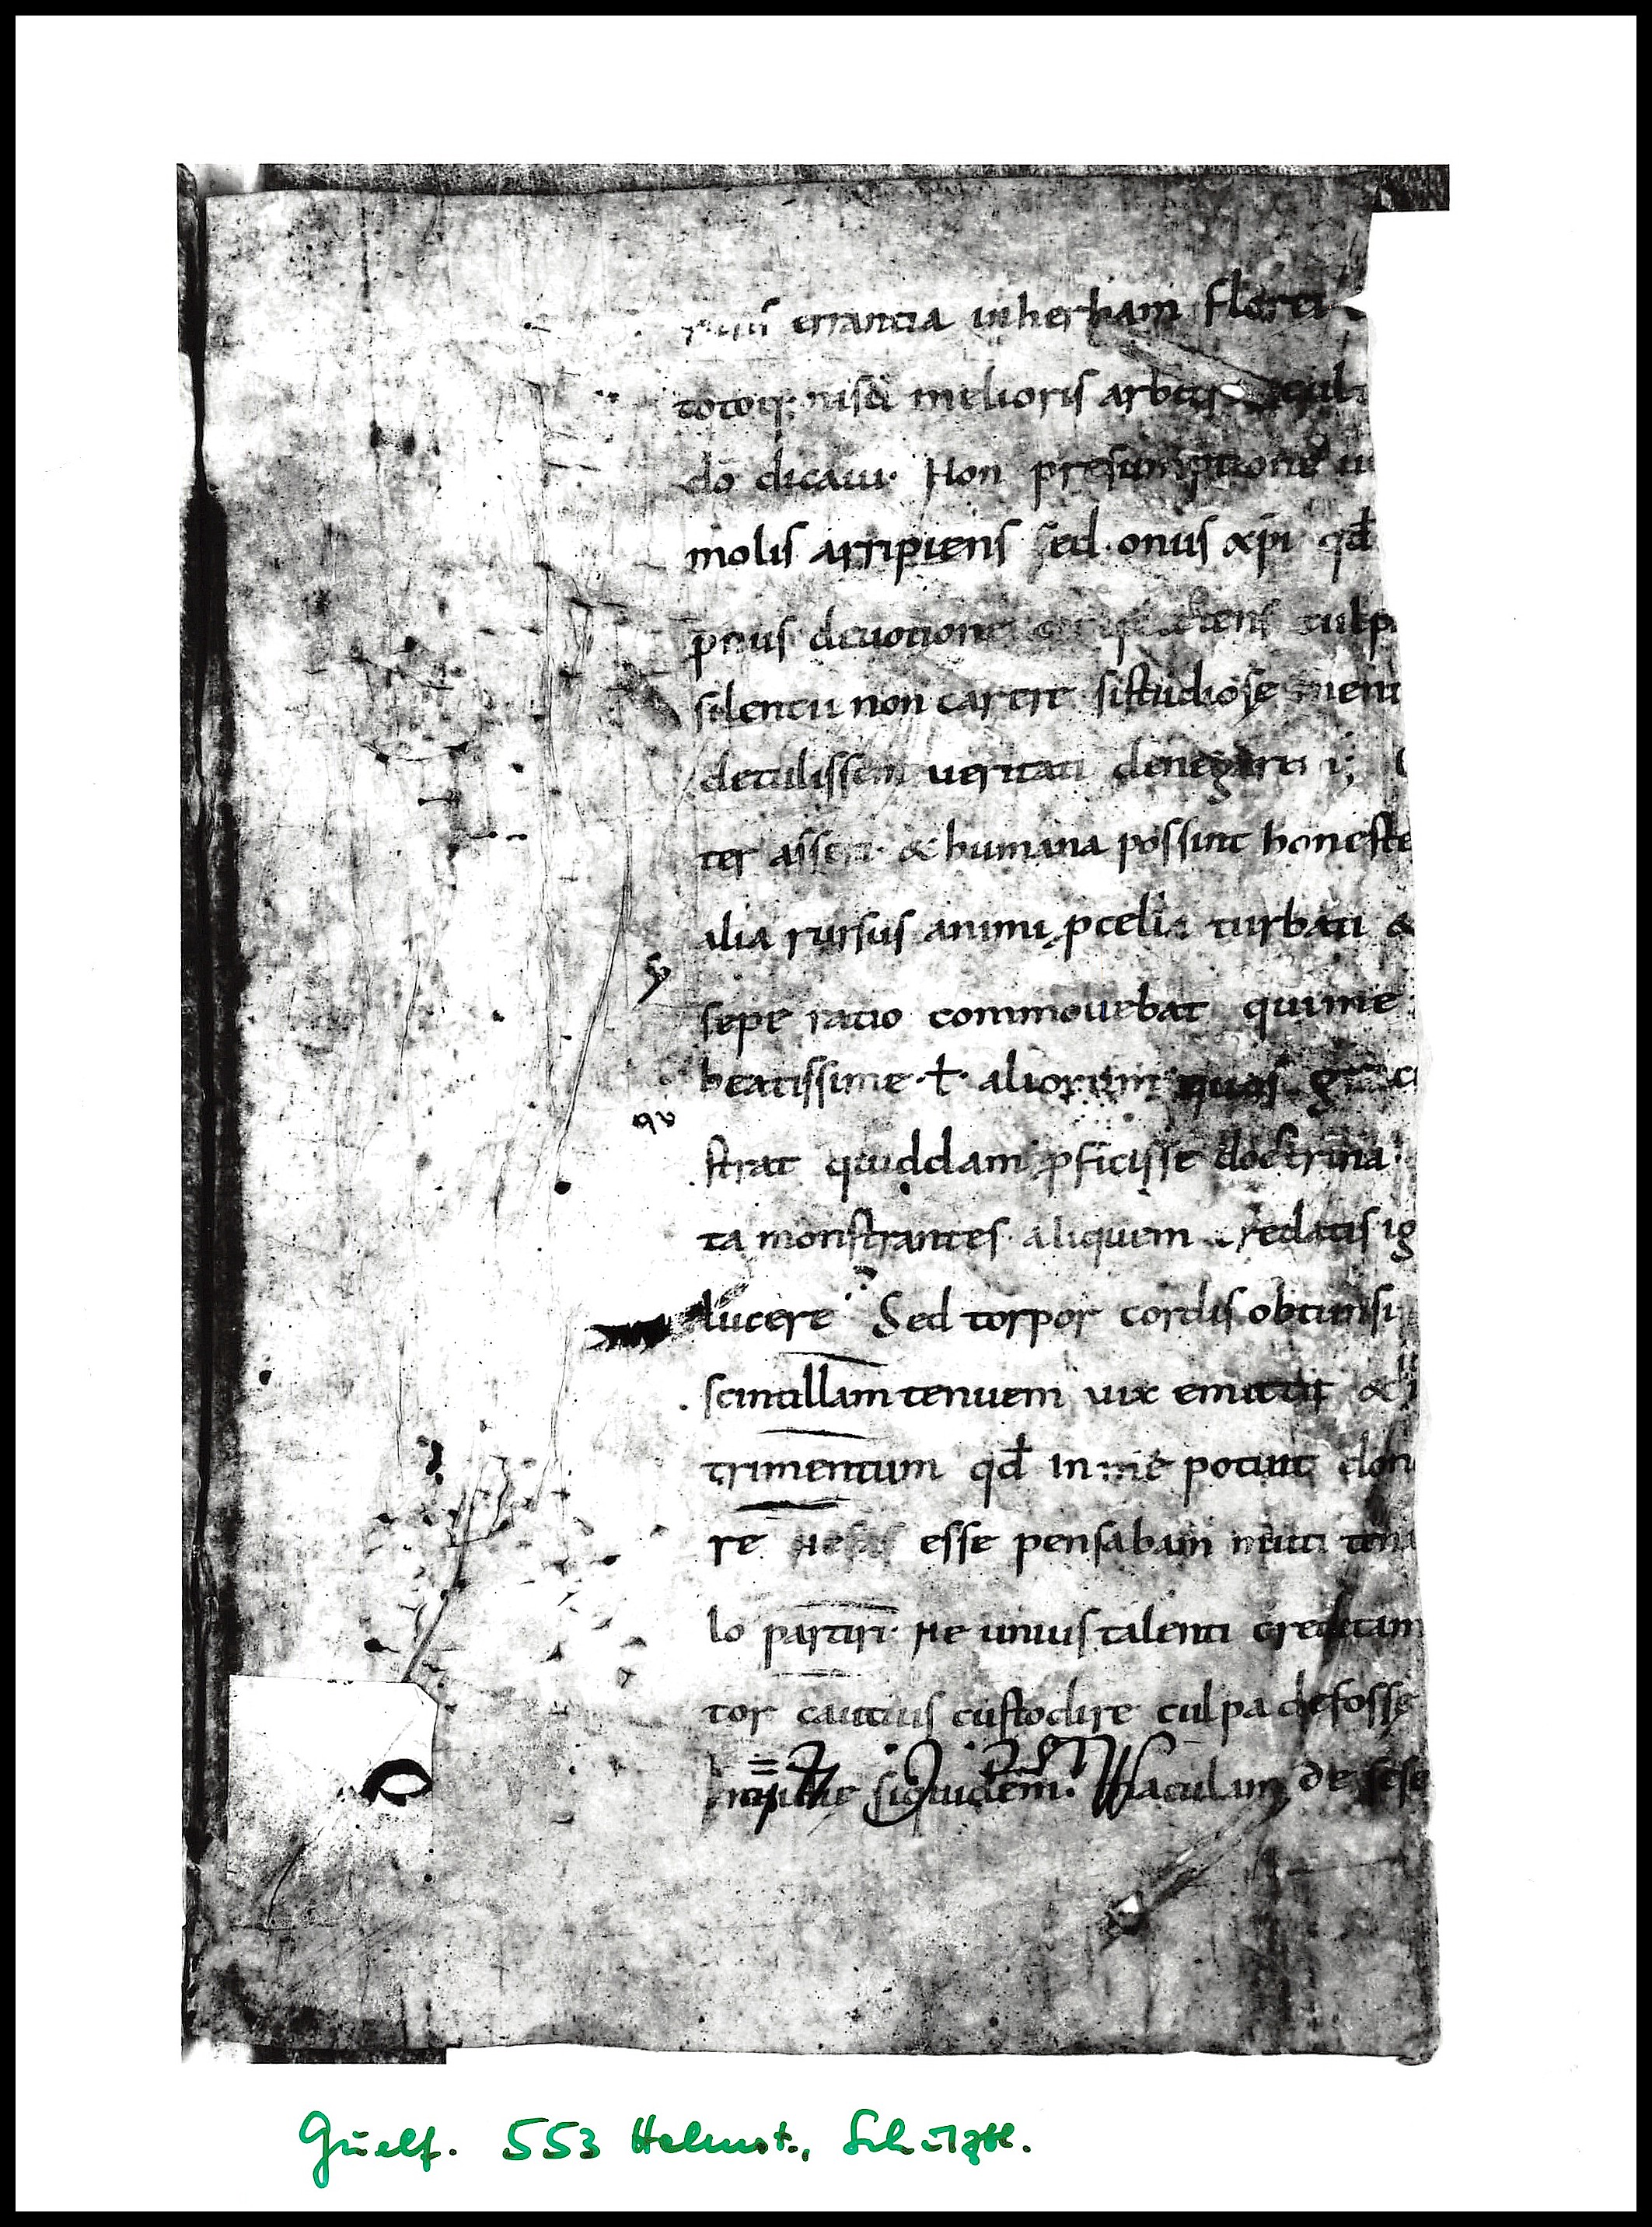 errantia in herbam florei
totoq; nisi melioris arbitr
do dicaui. Non presumptione
molis arripiens sed onus xpi qd
prius deuotione culp
silentii non carere si studiose ment
detulissem ueritati denegari
ter asseri & humana possint honeste
alia rursus animi pcella turbati &
sepe ratio commouebat qui me
beatissime ł aliorum quos
qu
strat quiddam pficisse doctrina
ta monstrantes aliquem credatis ig
lucere Sed torpor cordis obtunsi
scintillam tenuem uix emittit &
trimentum qd in me potuit don
re Nefas esse pensabam muti
lo partiri. Ne unius talenti creditam
tor cautius custodire culpa defosse
siquidem. Maculam de sese
Guelf. 553 Helmst., Schutzbl.